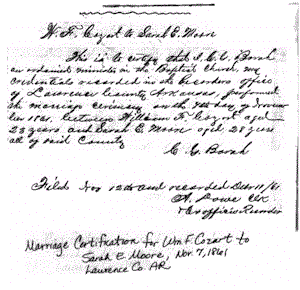 W. F. Cozart to Sarah E. Moore
This is to certify that I C. C. Borah
an ordained minister in the Baptist Church, my
credentials recorded in the Recorders office
of Lawrence County Arkansas, performed
the marriage ceremony on the 7th day of Novem
ber 1861. between William F. Cozart aged
23 years and Sarah E Moore aged 28 years
all of said County
C. C. Borah
Filed Nov 12th and recorded 11/61
A. Lowe Clk
& Ex officio Recorder
Marriage Certification for Wm F. Cozart to
Sarah E. Moore, Nov. 7, 1861
Lawrence Co. AR